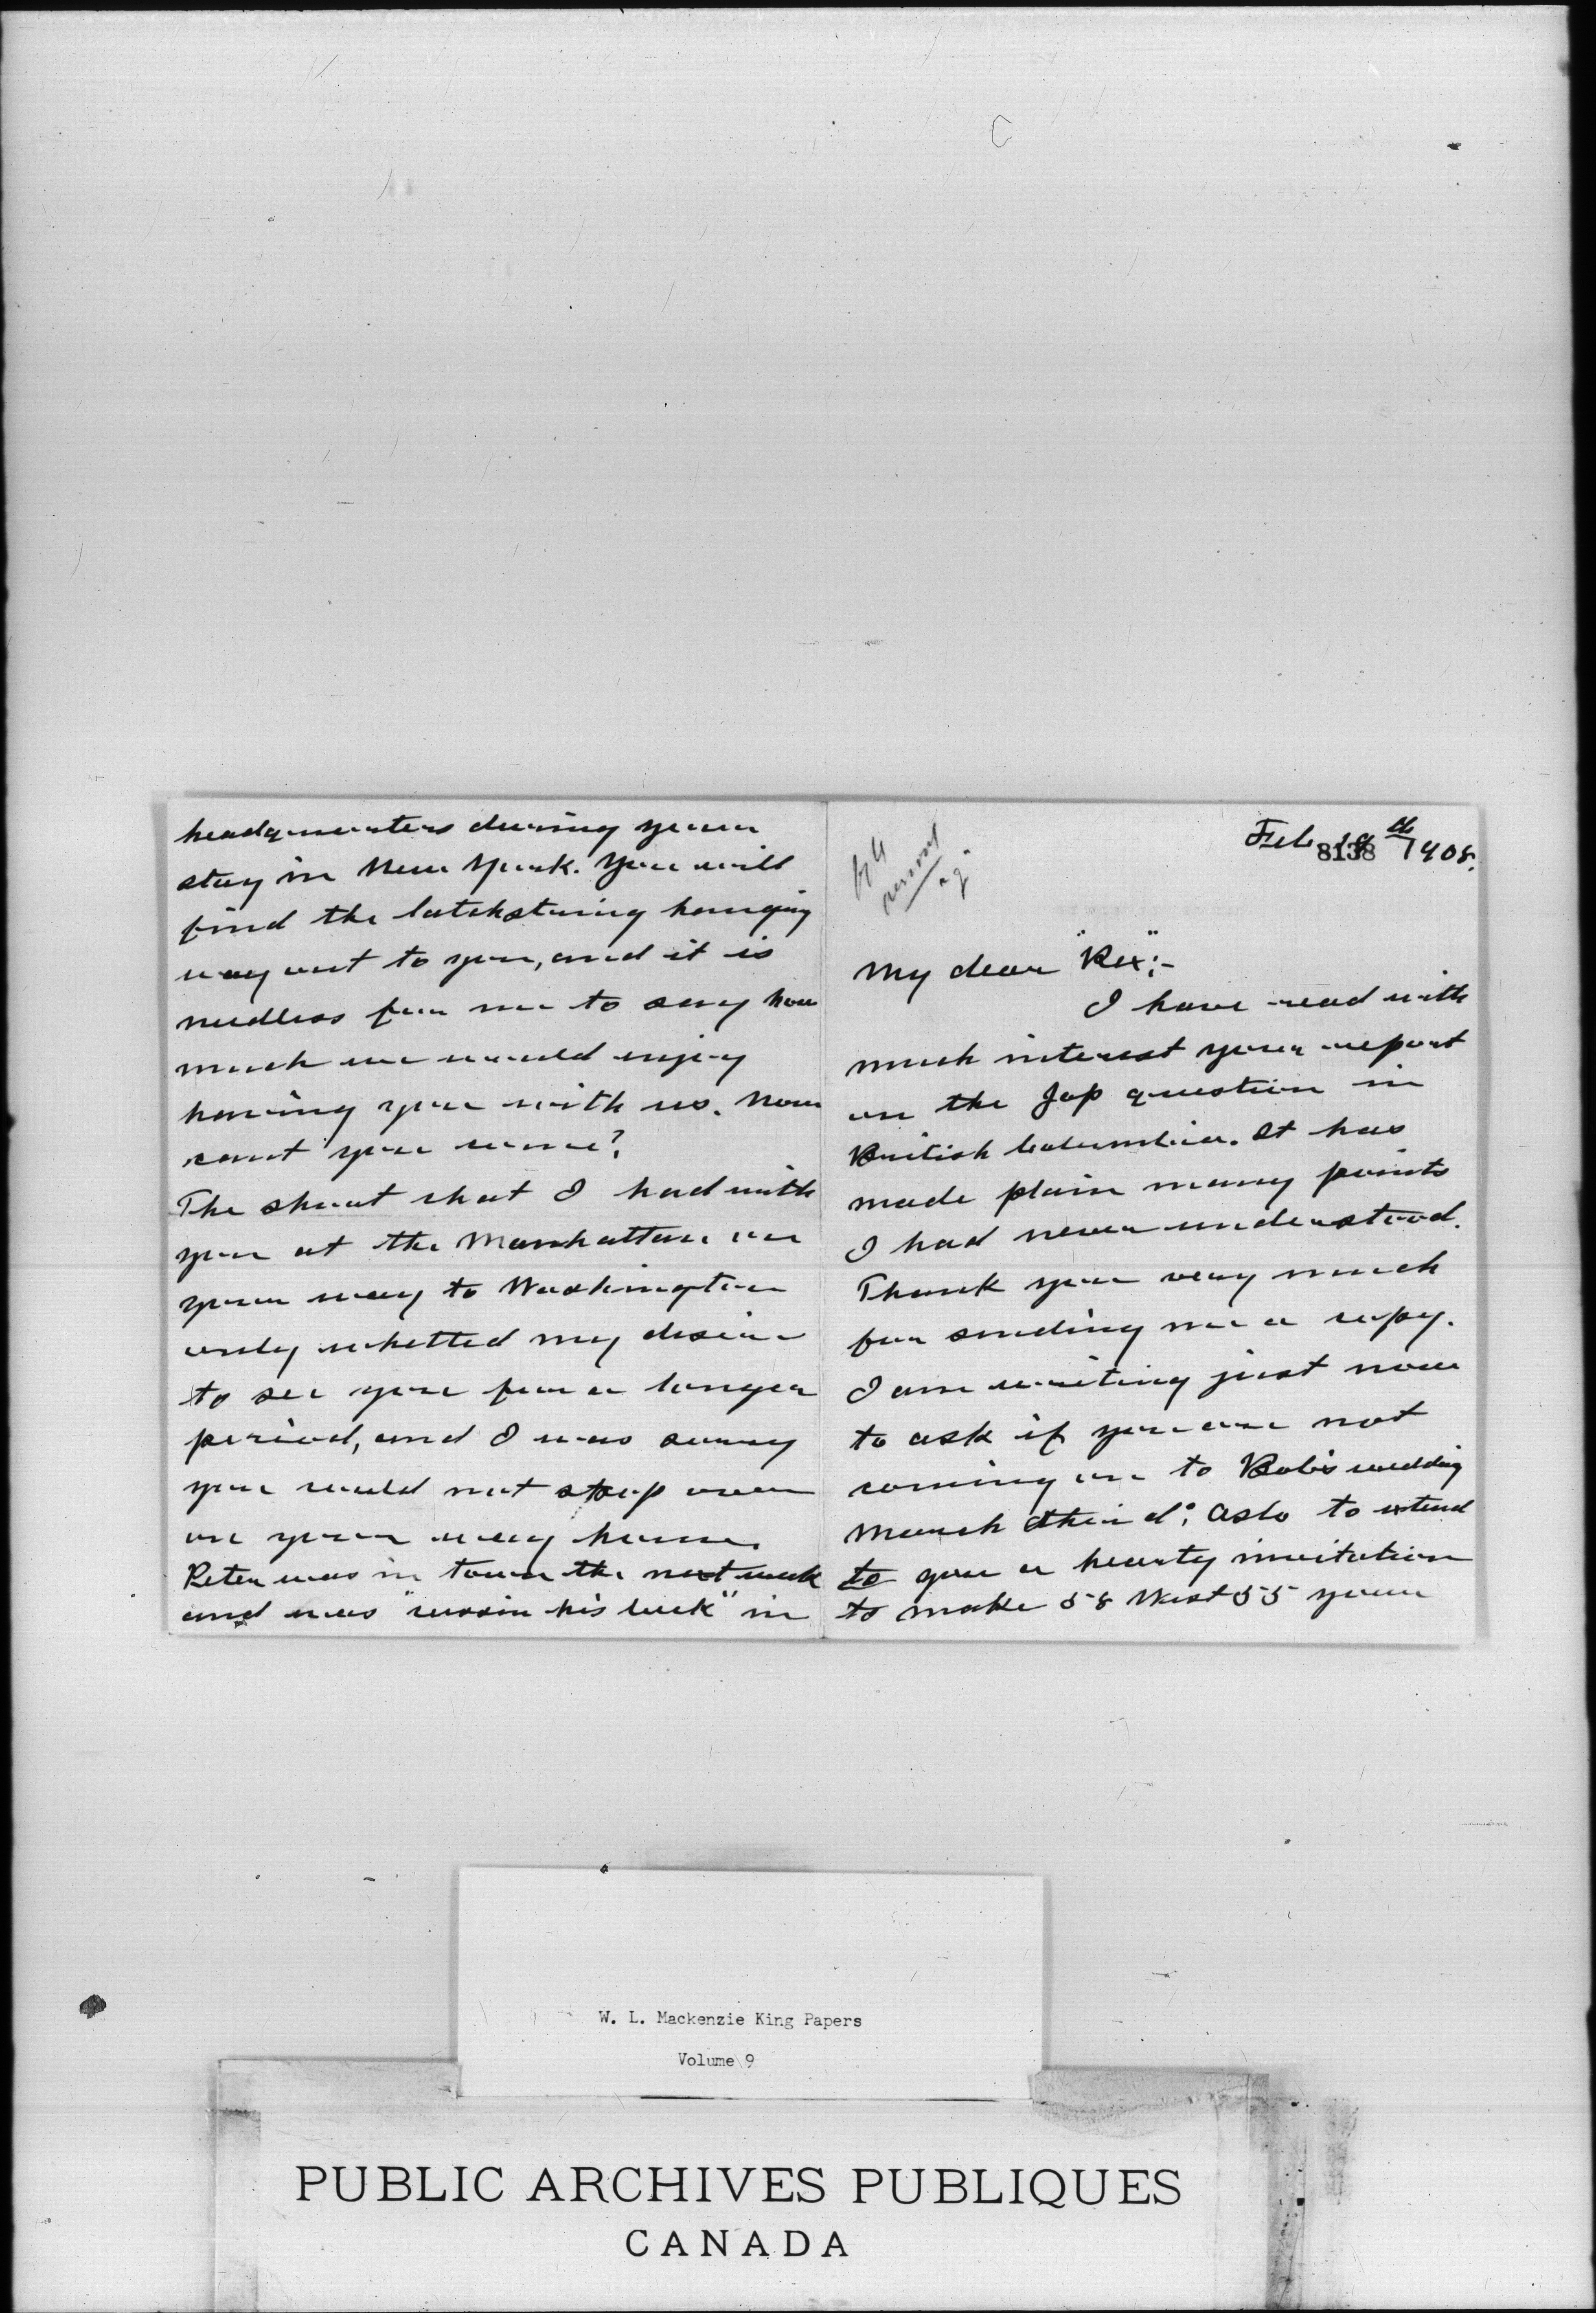 Feb 19th 1908.
8138
My dear "Rex":-
I have read with
much interest your report
on the Jap question in
British Columbia. It has
made plain many points
I had never understood.
Thank you very much
for sending me a copy.
I am writing just now
to ask if you are not
coming on to Bob's wedding
March third; aslo to extend
to you a hearty invitation
to make 58 West 55 your
headquarters during your
stay in New York. You will
find the latchstring hanging
way out to you, and it is
needless for me to say how
much we would enjoy
having you with us. Now
cant you come?
The short chat I had with
you at the Manhattan on
your way to Washington
only whetted my desire
to see you for a longer
period, and I was sorry
you could not stop over
on your way home.
Peter was in town the next week
and was "cussin his luck" in
W. L. Mackenzie King Papers
Volume 9
PUBLIC ARCHIVES PUBLIQUES
CANADA